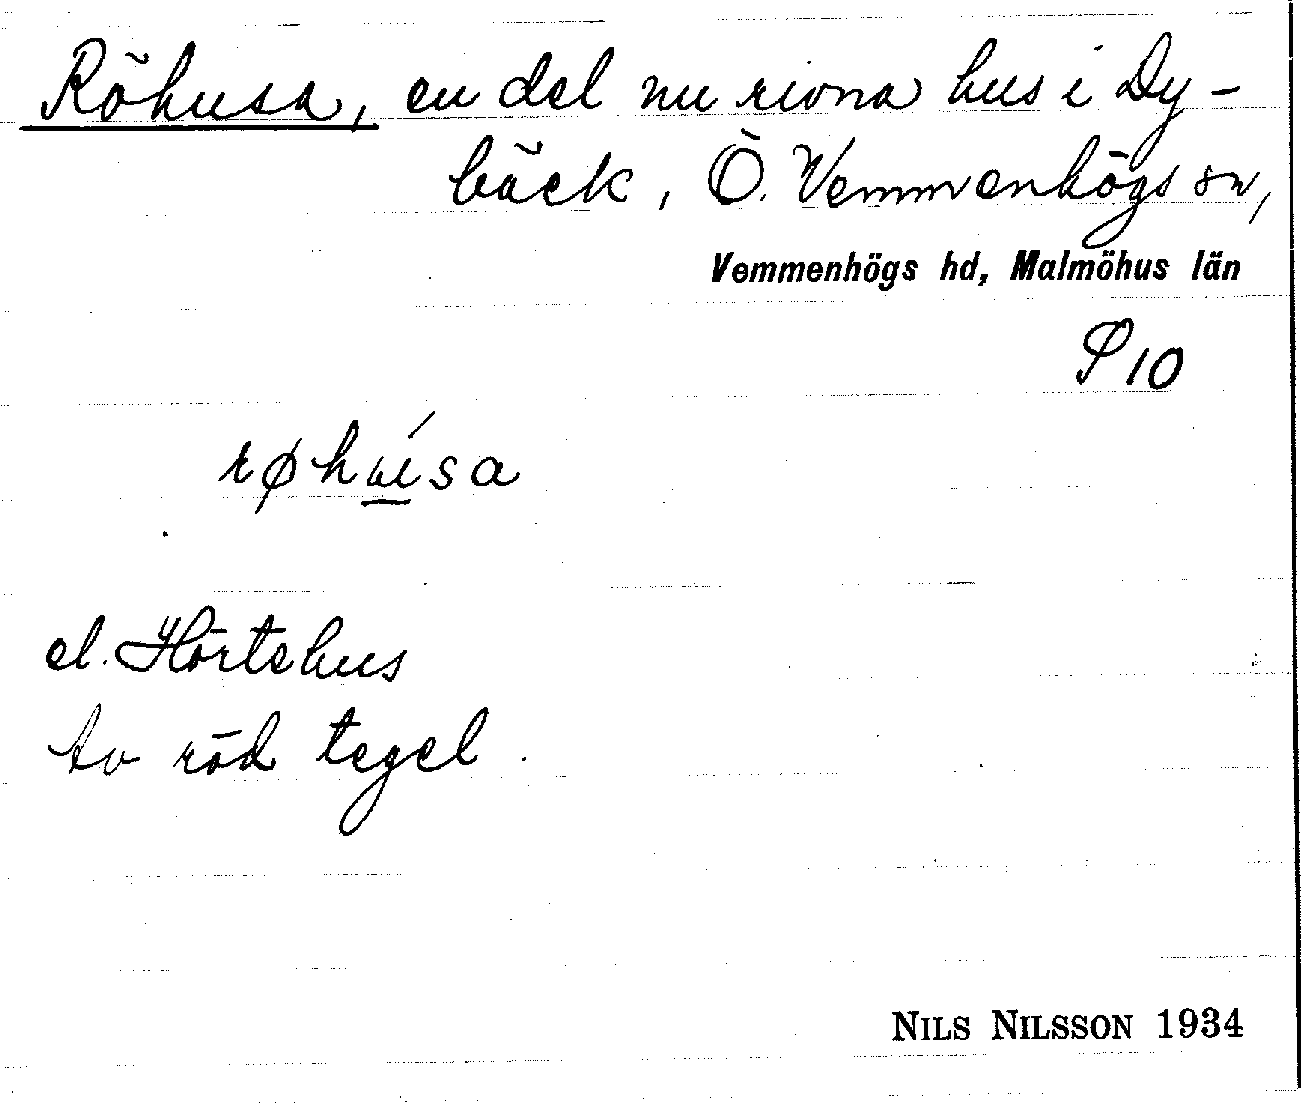 Röhusa, en del nu rivna hus i Dy-
bäck, Ö. Vemmenhögs sn,
Vemmenhögs hd, Malmöhus län
P10
røhuisa
el. Hörtehus
Av röd tegel.
NILS NILSSON 1934